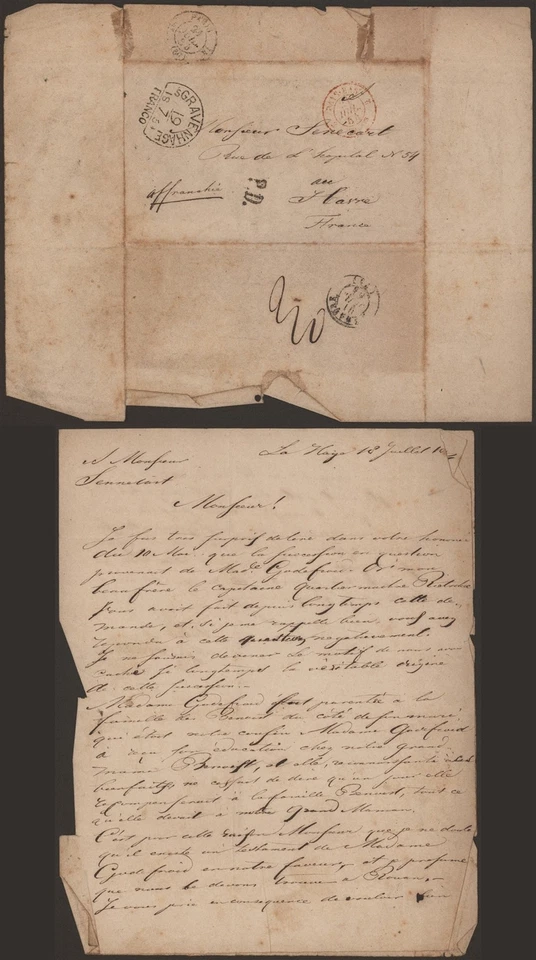 PARIS
'SGRAVENHAGE
FRANCO
Monsieur Senecart
Rue de L'hopital N 54
affranchie
P.D.
au
Havre
France
LE HAVRE
A Monsieur
Sennecart
La Haye 18 Juillet
Monsieur!
Je fus très surpris de lire dans votre honneur
du 10 Mai que la succession en question
provenant de Made Godefroid mon
beau frère le capitaine quartiermaitre
vous avait fait depuis longtemps cette de-
mande, et, si je me rappelle bien, vous avez
repondu à cette question negativement.
Je ne saurais deviner le motif de nous avoir
caché si longtemps la véritable origine
de cette succession.
Madame Godefroid était parentée a la
famille de Benoist du côté de son mari
qui était notre cousin Madame Godefroid
a reçu son éducation chez notre grand
maman Benoist, et elle, reconnaissante
bienfaits, ne cessait de dire qu'un jour elle
recompenserait à la famille Benoist, tout ce
qu'elle devait à notre Grand Maman.
C'est pour cette raison Monsieur que je ne doute
qu'il existe un testament de Madame
Godefroid en notre faveur, et je presume
que nous le devons trouver a Rouen.
Je vous prie en consequence de vouloir bien